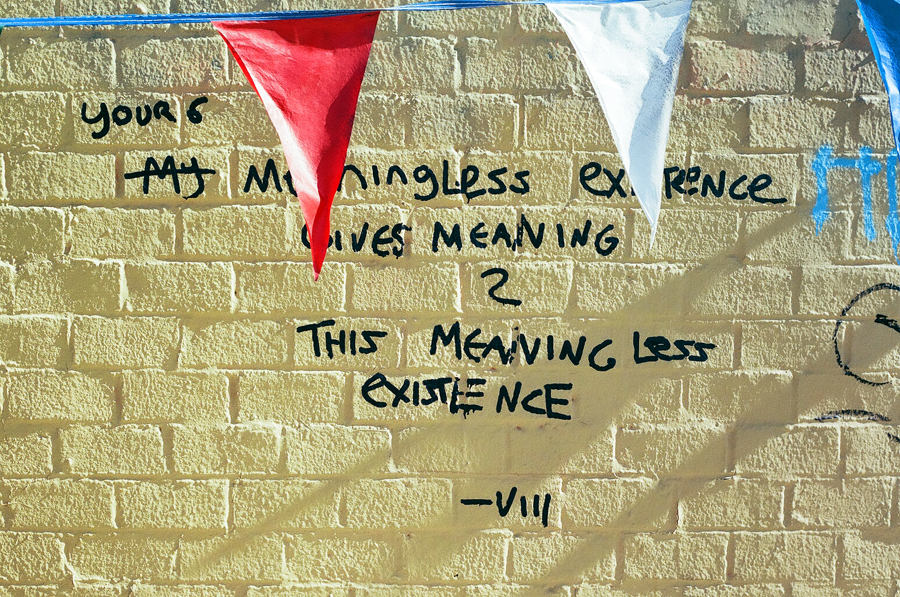 YOUR 6
My Meaningless existeNce
GIVES MEANING
2
THIS MEANING Less
eXISTENCE
-VIII